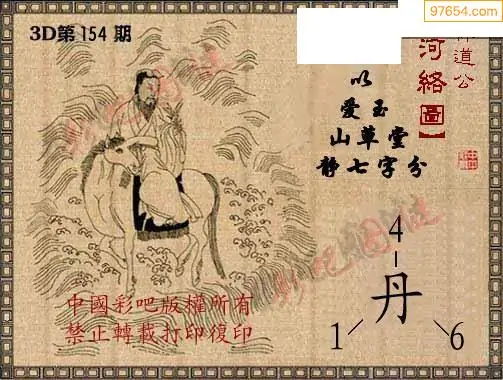 97654.com
3D第 154 期
道公
河絡圖】
以
愛玉
山草堂
静七字分
彩吧圖迷
彩吧圖迷
4
丹
1
6
中國彩吧版權所有
禁止轉載打印復印